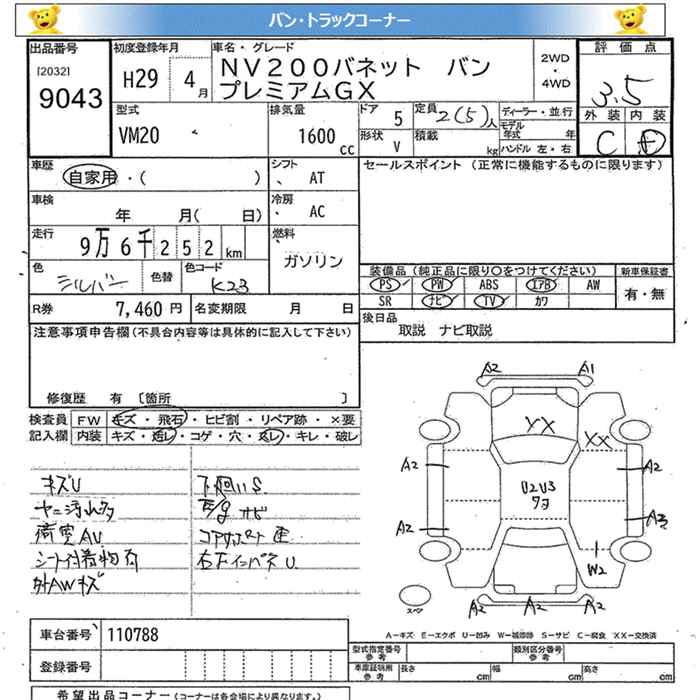 バン・トラックコーナー
出品番号 初度登録年月 車名・グレード 評価点
[2032] 9043 H29 4月 NV200バネット バン 2WD・4WD 3.5
プレミアムGX
型式 排気量 ドア 5 定員 2(5)人 ディーラー・並行 外装 内装
VM20 1600cc 形状 V 積載 kg モデル年式 年 C D
ハンドル 左・右
車歴 シフト セールスポイント (正常に機能するものに限ります)
自家用・( ) AT
車検 冷房
年 月( 日) AC
走行 燃料
9万6千252km ガソリン
色 シルバー 色替 色コード K23
装備品 (純正品に限り〇をつけてください) 新車保証書
PS PW ABS エアB AW 有・無
SR ナビ TV カワ
R券 7,460円 名変期限 月 日
後日品
取説 ナビ取説
注意事項申告欄(不具合内容等は具体的に記入して下さい)
修復歴 有 [箇所 ]
検査員 FW キズ・飛石・ヒビ割・リペア跡・×要
記入欄 内装 キズ・汚レ・コゲ・穴・スレ・キレ・破レ
キズU 下廻りS
ヤニ汚れ多
荷室AU
シート付着物有
外AWキズ
A2 A1
YX XX
A2 A2
U2U3
A2 A3
W2
スペア
A2 A2 A2
A-キズ E-エクボ U-凹み W-補修跡 S-サビ C-腐食 XX-交換済
車台番号 110788
型式指定番号 参考 類別区分番号 参考
登録番号
車庫証明用 参考 長さ cm 幅 cm 高さ cm
希望出品コーナー (コーナーは各会場により異なります)